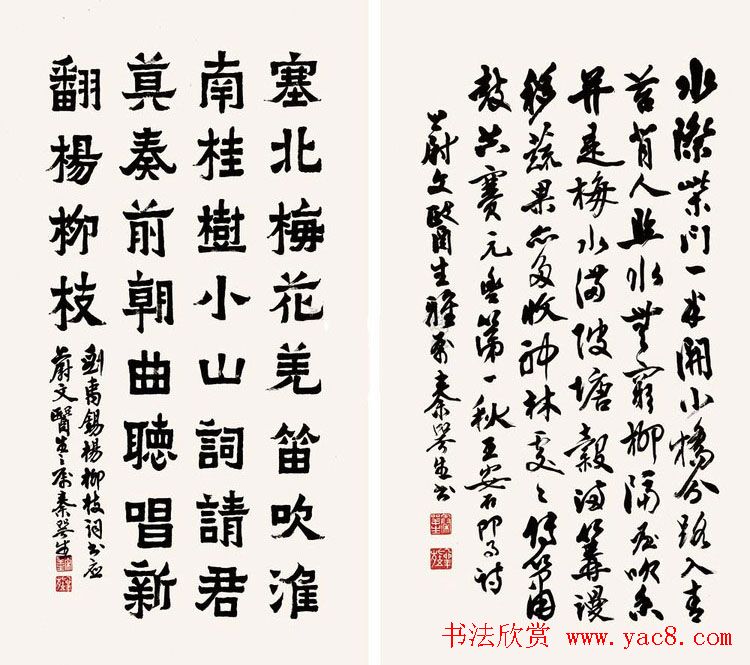 塞北梅花羌笛吹淮
南桂樹小山詞請君
莫奏前朝曲聽唱新
翻楊柳枝
劉禹錫楊柳枝詞書应
蔚文醫生之屬秦咢生
水際柴門一半開小橋分路入青
苔背人照水無窮柳隔屋吹香
并是梅水滿陂塘穀滿篝漫
移蔬果亦多收神林處々傳簫
鼓共賽元豐第一秋王安石即事詩
蔚文醫生雅屬秦咢生書
书法欣赏 www.yac8.com